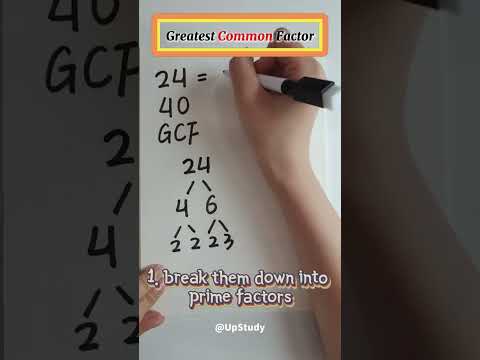 Greatest Common Factor
24 =
40
GCF
24
4 6
2 2 2 3
1. break them down into
prime factors
@UpStudy
2
4
2 2